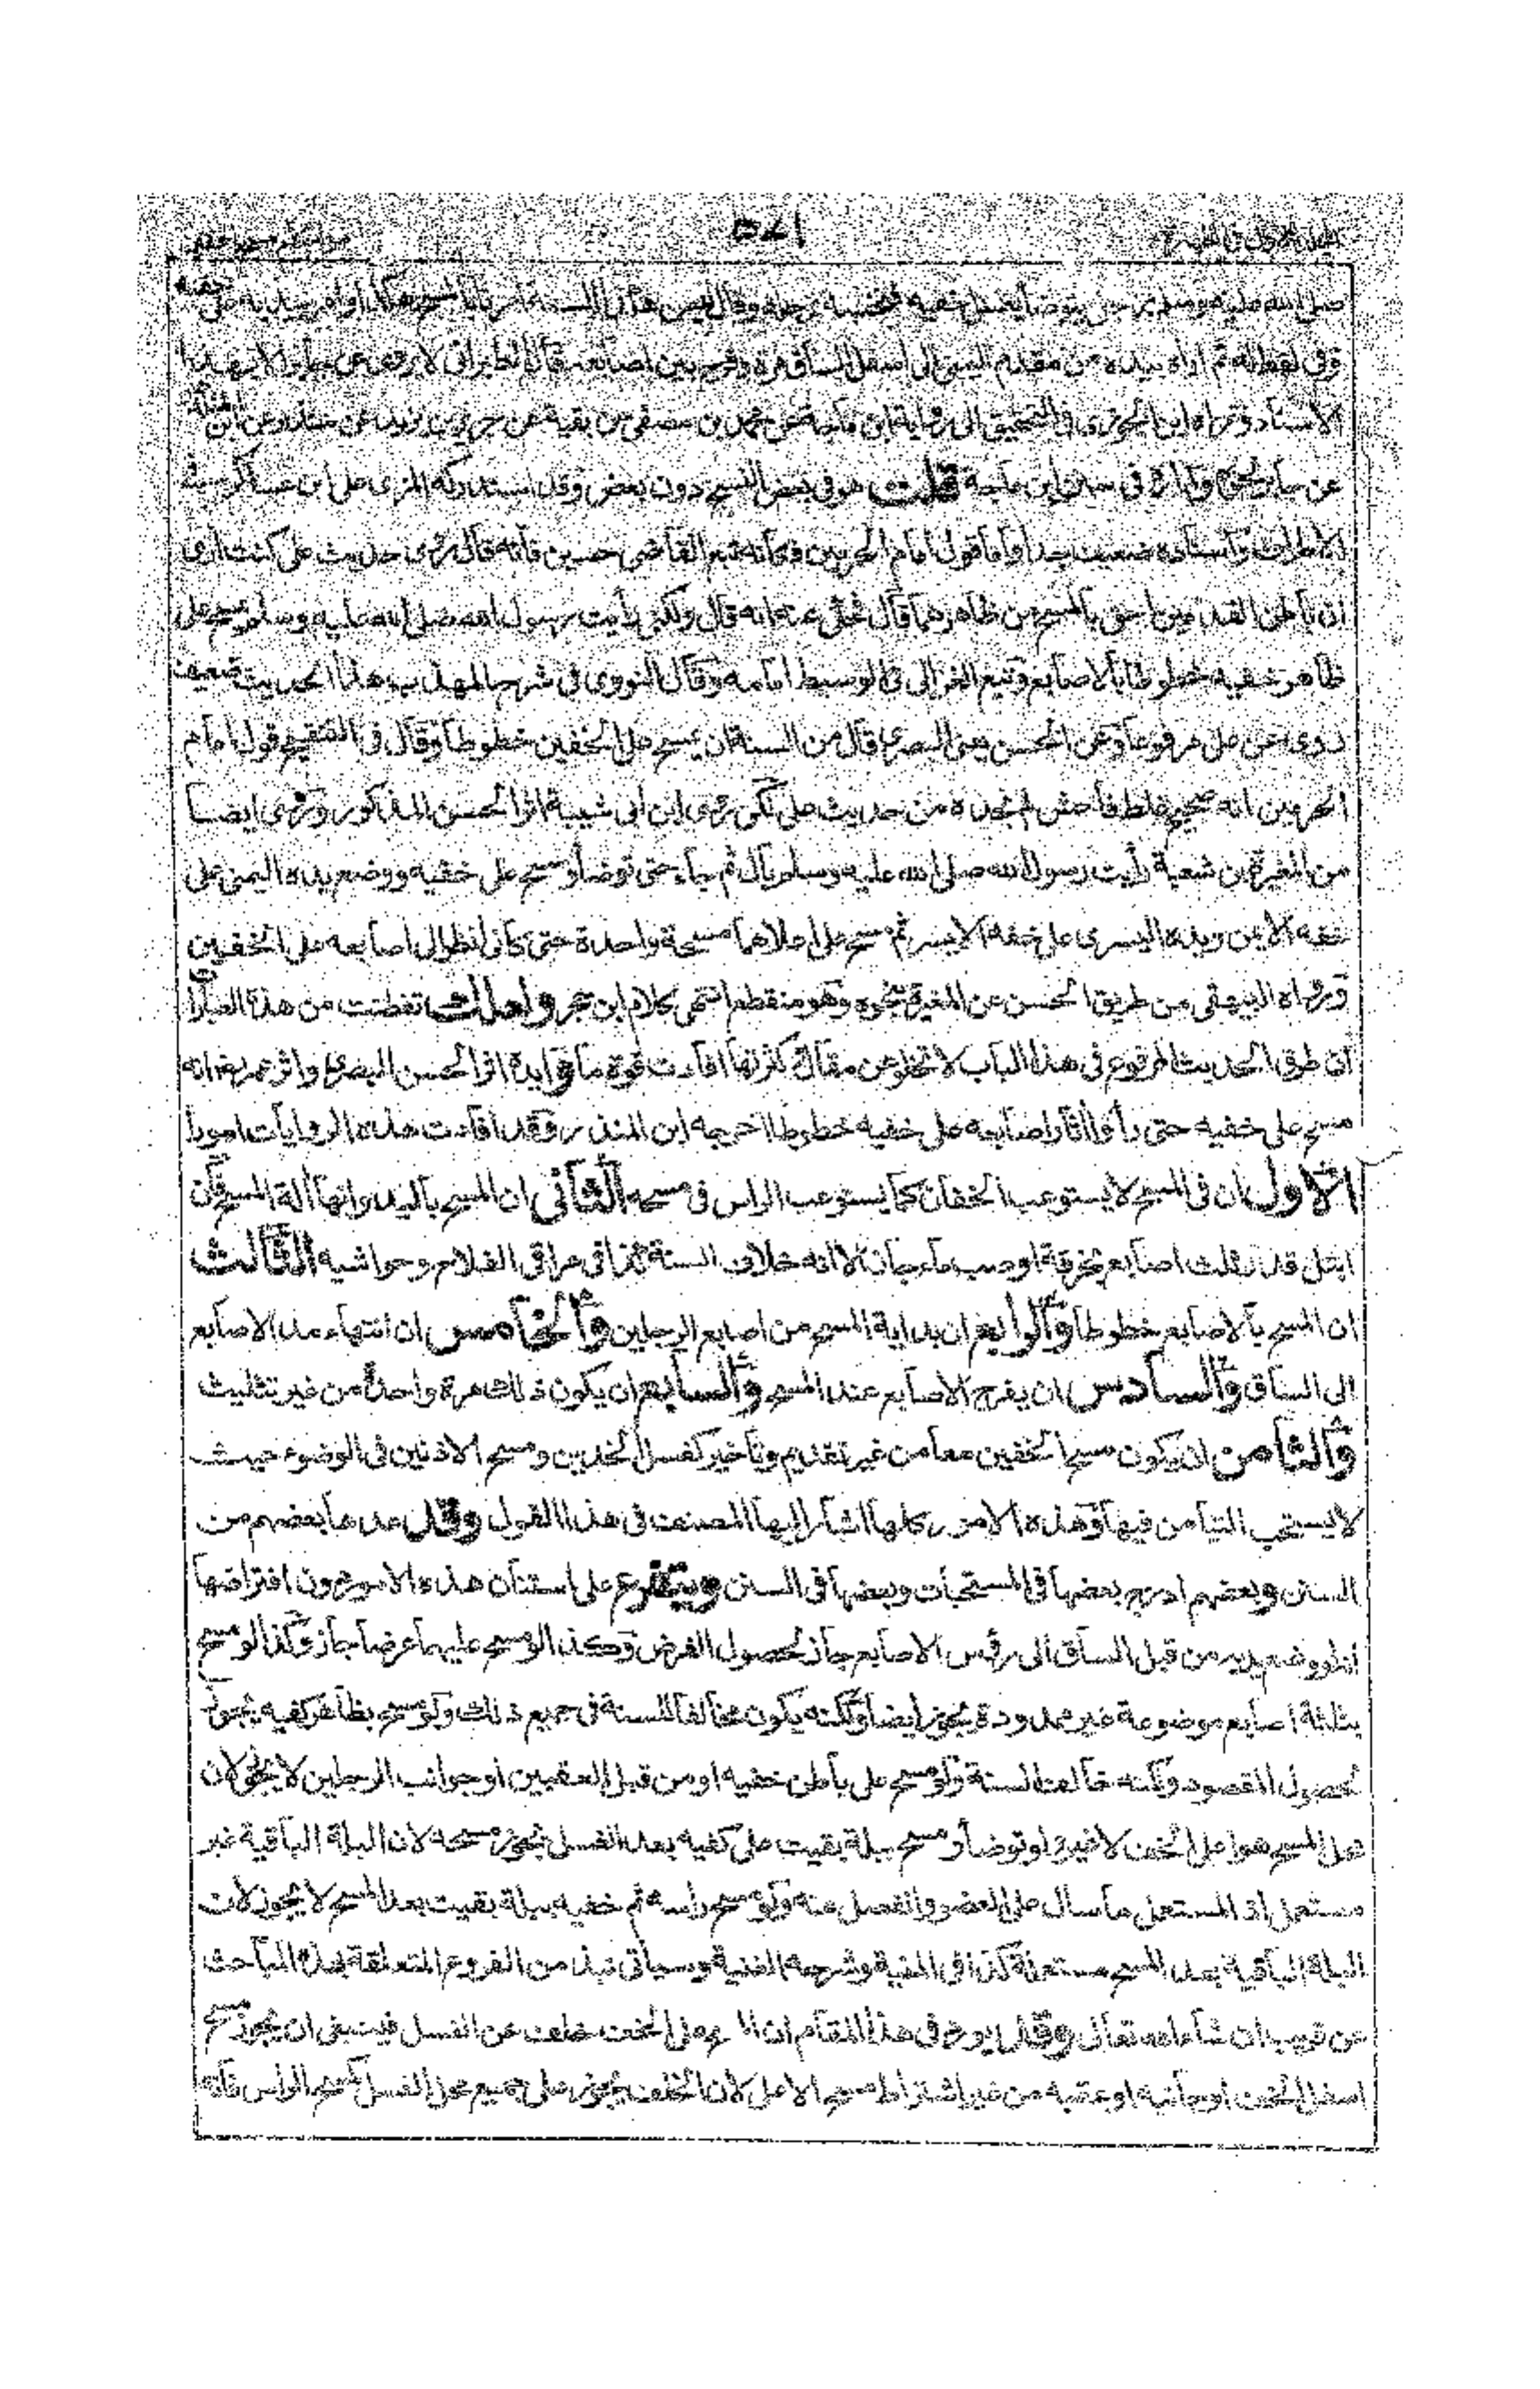 صلى الله عليه وسلم برجل يتوضأ يغسل خفيه فنخسه برجله وقال ليس هكذا السنة امرنا بالمسح هكذا وامر بيديه على خفيه
وفى لفظ له ثم اراه بيده من مقدم الخفين الى اصل الساق مرة وفرج بين اصابعه قال الطبرانى لا يروى عن جابر الا بهذا
الاسناد وعزاه ابن الجوزى فى التحقيق الى رواية ابن ماجة عن محمد بن مصفى عن بقية عن جرير بن يزيد عن منذر عن ابن المنكدر
عن جابر نحوه ولم اره فى سنن ابن ماجة قلت هو فى بعض النسخ دون بعض وقد استدركه المزى على ابن عساكر فى
الاطراف واسناده ضعيف جدا واما قول امام الحرمين فكانه تبع القاضى حسين فانه قال روى حديث على كنت ارى
ان باطن القدمين احق بالمسح من ظاهرهما قال على عنه انه قال ولكنى رأيت رسول الله صلى الله عليه وسلم يمسح على
ظاهر خفيه خطوطا بالاصابع وتبع الغزالى فى الوسيط امامه وقال النووى فى شرح المهذب هذا الحديث ضعيف
روى عن على مرفوعا وعن الحسن يعنى البصرى قال من السنة ان يمسح على الخفين خطوطا وقال فى التنقيح قول امام
الحرمين انه صحيح غلط فاحش لم نجده من حديث على لكن روى ابن ابى شيبة اثر الحسن المذكور وروى ايضا
من المغيرة بن شعبة رأيت رسول الله صلى الله عليه وسلم بال ثم جاء حتى توضأ ومسح على خفيه ووضع يده اليمنى على
خفه الايمن ويده اليسرى على خفه الايسر ثم مسح على اعلاهما مسحة واحدة حتى كانى انظر الى اصابعه على الخفين
ورواه البيهقى من طريق الحسن عن المغيرة بنحوه وهو منقطع انتهى كلام ابن حجر ولعلك تفطنت من هذا العبارة
ان طرق الحديث المرفوع فى هذا الباب لا تخلو عن مقال لكن كثرتها افادت قوة ما وايده اثر الحسن البصرى واثر عمر بغ انه
مسح على خفيه حتى رأوا آثار اصابعه على خفيه خطوطا اخرجه ابن المنذر وقد افادت هذه الروايات امورا
الاول ان فى المسح لا يستوعب الخفان كما يستوعب الراس فى مسحه الثانى ان المسح باليد وانها آلة المسح فان
ابتل قدر ثلث اصابع بخرقة او صب ماء جاز الا انه خلاف السنة كذا فى مراقى الفلاح وحواشيه الثالث
ان المسح بالاصابع خطوطا والرابع ان بداية المسح من اصابع الرجلين والخامس ان انتهاء مد الاصابع
الى الساق والسادس ان يفرج الاصابع عند المسح والسابع ان يكون ذلك مرة واحدة من غير تثليث
والثامن ان يكون مسح الخفين معا من غير تقديم وتأخير كغسل الخدين ومسح الاذنين فى الوضوء حيث
لا يستحب التيامن فيها وهذه الامور كلها اشار اليها المصنف فى هذا القول وقد عدها بعضهم من
السنن وبعضهم ادرج بعضها فى المستحبات وبعضها فى السنن ويتفرع على استنان هذه الامور دون افتراضها
انه لو وضع يديه من قبل الساق الى رؤس الاصابع جاز لحصول الفرض وكذا لو مسح عليهما عرضا جاز وكذا لو مسح
بثلثة اصابع موضوعة غير ممدودة يجوز ايضا ولكنه يكون مخالفا للسنة فى جميع ذلك ولو مسح بظاهر كفيه يجوز
لحصول المقصود ولكنه خالف السنة ولو مسح على باطن خفيه او من قبل العقبين او جوانب الرجلين لا يجوز لان
محل المسح هو اعلى الخف لا غير ولو توضأ ومسح ببلة بقيت على كفيه بعد الغسل يجوز مسحه لان البلة الباقية غير
مستعمل اذ المستعمل ما سال على العضو وانفصل عنه ولو مسح راسه ثم خفيه ببلة بقيت بعد المسح لا يجوز لان
البلة الباقية بعد المسح مستعملة كذا فى المنية وشرحه الغنية وسيأتى نبذ من الفروع المتعلقة بهذا المباحث
عن قريب ان شاء الله تعالى وقد يورد فى هذا المقام ان المسح على الخف خلف عن الغسل فينبغى ان يجوز مسح
اسفل الخف او جانبه او عقبه من غير اشتراط مسح الاعلى لان الخلف يجوز على جميع محل الغسل كمسح الراس فانه